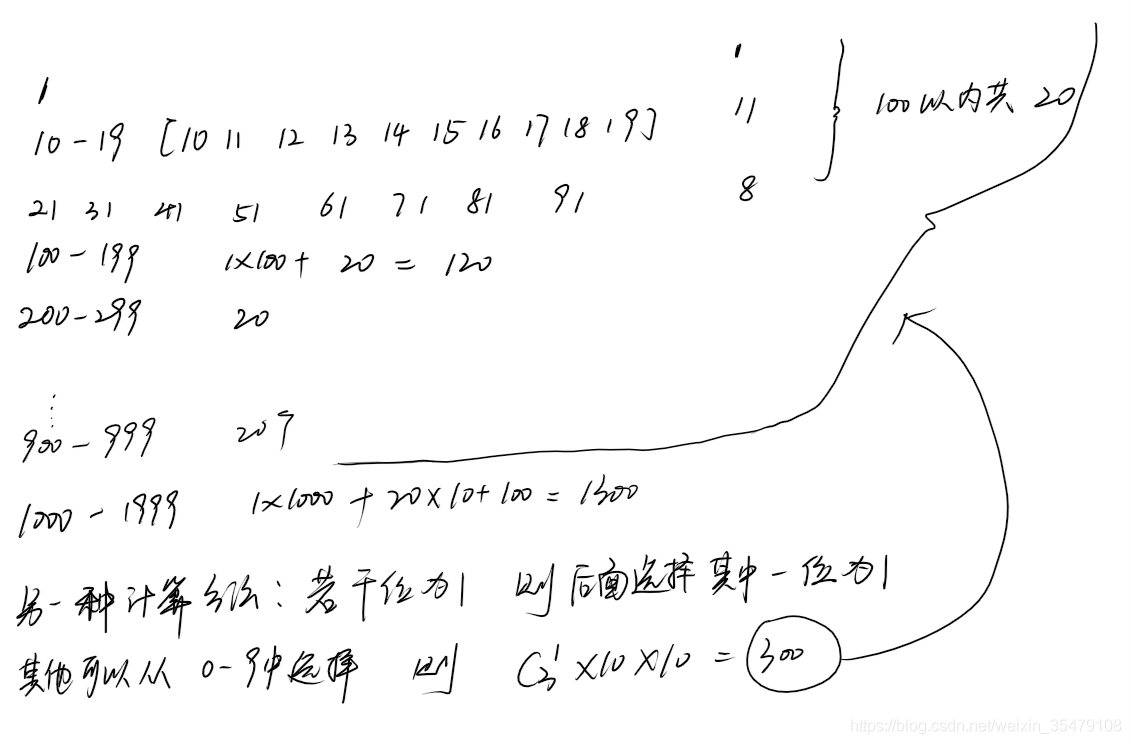 1 1
10-19 [10 11 12 13 14 15 16 17 18 19] 11 100以内共 20
21 31 41 51 61 71 81 91 8
100-199 1×100+ 20 = 120
200-299 20
⋮
900-999 20个
1000-1999 1×1000 + 20×10+100 = 1300
另一种计算方法: 若千位为1 则 后面选择 其中一位为1
其他可以从 0-9中选择 则 C₃¹ ×10×10 = 300
https://blog.csdn.net/weixin_35479108